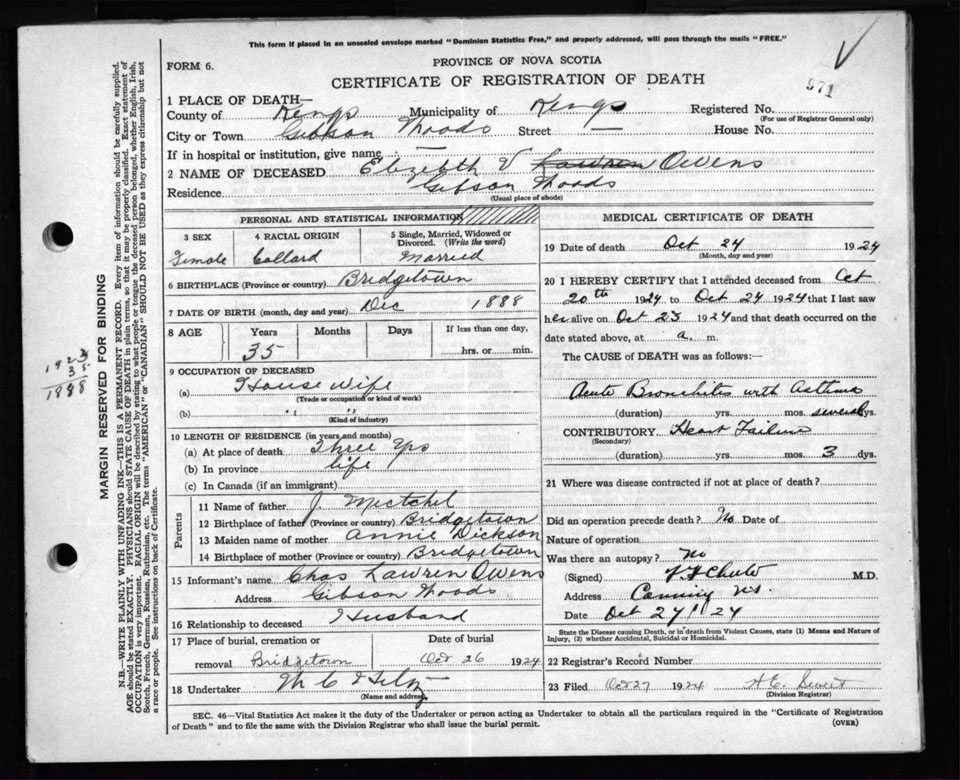 This form if placed in an unsealed envelope marked "Dominion Statistics Free," and properly addressed, will pass through the mails "FREE."
FORM 6.
PROVINCE OF NOVA SCOTIA
CERTIFICATE OF REGISTRATION OF DEATH
971
1 PLACE OF DEATH—
County of Kings Municipality of Kings Registered No.
(For use of Registrar General only)
City or Town Gibson Woods Street — House No.
If in hospital or institution, give name —
2 NAME OF DECEASED Elizibeth V Lawren Owens
Residence Gibson Woods
(Usual place of abode)
PERSONAL AND STATISTICAL INFORMATION
3 SEX 4 RACIAL ORIGIN 5 Single, Married, Widowed or Divorced. (Write the word)
Female Collard Married
6 BIRTHPLACE (Province or country) Bridgetown
7 DATE OF BIRTH (month, day and year) Dec 1888
8 AGE Years Months Days If less than one day,
35 hrs. or min.
9 OCCUPATION OF DECEASED
(a) House wife
(Trade or occupation or kind of work)
(b) " "
(Kind of industry)
10 LENGTH OF RESIDENCE (in years and months)
(a) At place of death Three yrs
(b) In province life
(c) In Canada (if an immigrant)
Parents
11 Name of father J. Mitchel
12 Birthplace of father (Province or country) Bridgetown
13 Maiden name of mother Annie Dickson
14 Birthplace of mother (Province or country) Bridgetown
15 Informant's name Chas Lawren Owens
Address Gibson Woods
16 Relationship to deceased Husband
17 Place of burial, cremation or removal Bridgetown Date of burial Oct 26 1924
18 Undertaker
(Name and address)
MEDICAL CERTIFICATE OF DEATH
19 Date of death Oct 24 1924
(Month, day and year)
20 I HEREBY CERTIFY that I attended deceased from Oct
20th 1924 to Oct 24 1924 that I last saw
her alive on Oct 23 1924 and that death occurred on the
date stated above, at a. m.
The CAUSE of DEATH was as follows:
Acute Bronchitis with Asthma
(duration) yrs. mos. several dys.
CONTRIBUTORY Heart Failure
(Secondary)
(duration) yrs. mos. 3 dys.
21 Where was disease contracted if not at place of death?
Did an operation precede death? No Date of
Nature of operation
Was there an autopsy? No
(Signed) M.D.
Address Canning N.S.
Date Oct 27/24
State the Disease causing Death, or in death from Violent Causes, state (1) Means and Nature of Injury, (2) whether Accidental, Suicidal or Homicidal.
22 Registrar's Record Number
23 Filed Oct 27 1924
(Division Registrar)
SEC. 46—Vital Statistics Act makes it the duty of the Undertaker or person acting as Undertaker to obtain all the particulars required in the "Certificate of Registration
of Death" and to file the same with the Division Registrar who shall issue the burial permit. (OVER)
MARGIN RESERVED FOR BINDING
N.B.—WRITE PLAINLY WITH UNFADING INK—THIS IS A PERMANENT RECORD. Every item of information should be carefully supplied.
AGE should be stated EXACTLY. PHYSICIANS should STATE CAUSE OF DEATH in plain terms, so that it may be properly classified. Exact statement of
OCCUPATION is very important. RACIAL ORIGIN will be described by stating to what people or tongue the deceased person belonged, whether English, Irish,
Scotch, French, German, Russian, Ruthenian, etc. The terms "AMERICAN" or "CANADIAN" SHOULD NOT BE USED as they express citizenship but not
a race or people. See instructions on back of Certificate.
1923
35
1888